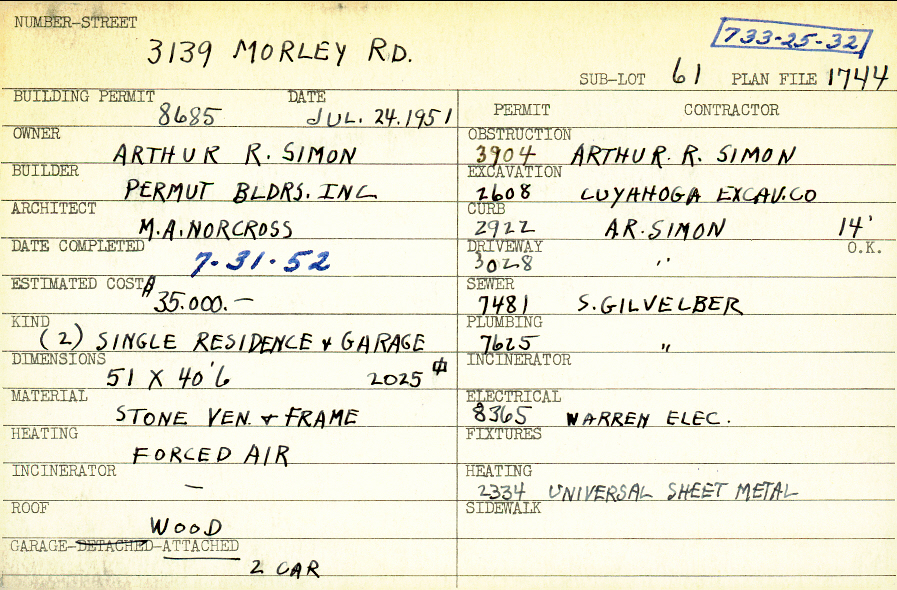 NUMBER-STREET
3139 MORLEY RD.
733-25-32
SUB-LOT 61 PLAN FILE 1744
BUILDING PERMIT DATE
8685 JUL. 24.1951
OWNER
ARTHUR R. SIMON
BUILDER
PERMUT BLDRS. INC
ARCHITECT
M.A. NORCROSS
DATE COMPLETED
7-31-52
ESTIMATED COST $
35.000.—
KIND
(2) SINGLE RESIDENCE & GARAGE
DIMENSIONS
51 X 40'6 2025 ⏀
MATERIAL
STONE VEN. & FRAME
HEATING
FORCED AIR
INCINERATOR
—
ROOF
WOOD
GARAGE-DETACHED-ATTACHED
2 CAR
PERMIT CONTRACTOR
OBSTRUCTION
3904 ARTHUR. R. SIMON
EXCAVATION
2608 CUYAHOGA EXCAV.CO
CURB
2922 A.R. SIMON 14'
DRIVEWAY O.K.
3028 "
SEWER
7481 S. GILVELBER
PLUMBING
7625 "
INCINERATOR
ELECTRICAL
8365 WARREN ELEC.
FIXTURES
HEATING
2334 UNIVERSAL SHEET METAL
SIDEWALK